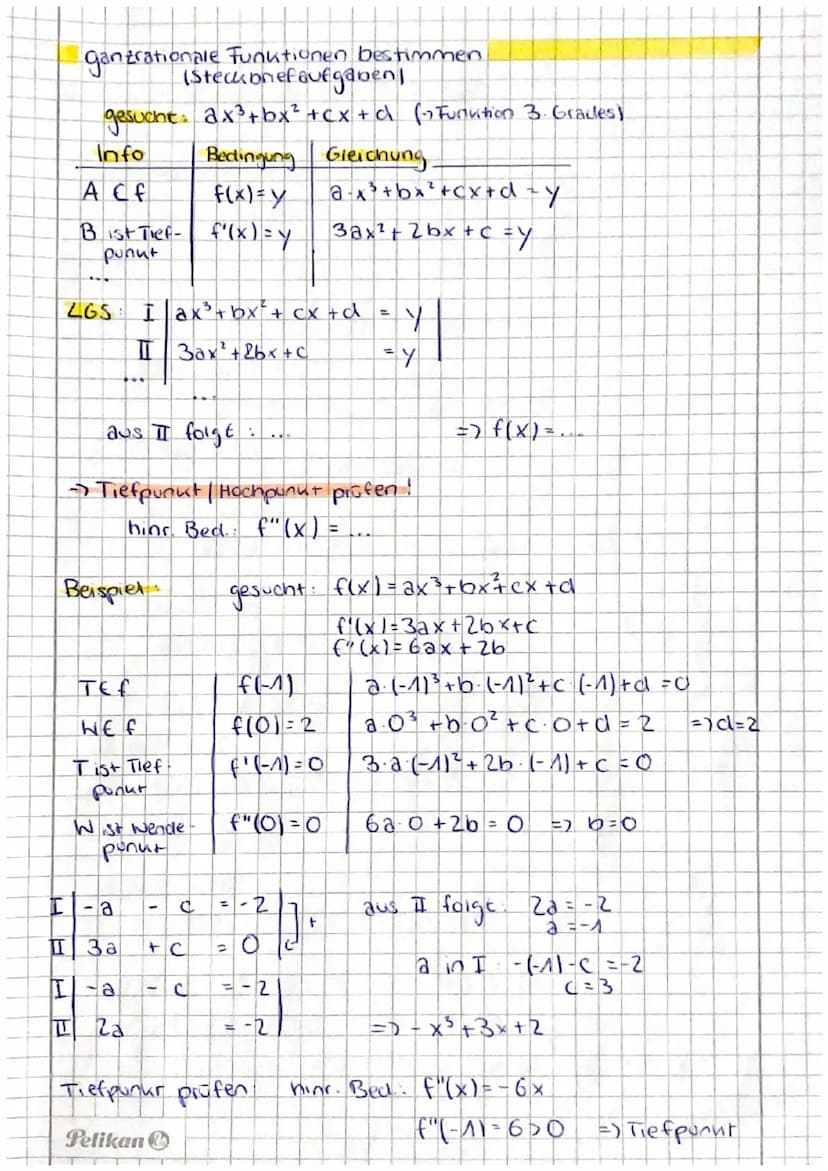 ganzrationale Funktionen bestimmen
(Steckbriefaufgaben)
gesucht: ax³+bx²+cx+d (→Funktion 3. Grades)
Info Bedingung Gleichung
A ∈ f f(x)=y a·x³+bx²+cx+d = y
B ist Tief- f'(x)=y 3ax²+2bx+c=y
punkt
...
LGS: I ax³+bx²+cx+d = y
II 3ax²+2bx+c = y
... ...
aus II folgt: ... => f(x)=...
-> Tiefpunkt/Hochpunkt prüfen!
hinr. Bed.: f"(x) = ...
Beispiel: gesucht: f(x)=ax³+bx²+cx+d
f'(x)=3ax+2bx+c
f"(x)=6ax+2b
T∈f f(-1) a·(-1)³+b·(-1)²+c·(-1)+d=0
W∈f f(0)=2 a·0³+b·0²+c·0+d=2 =>d=2
T ist Tief- f'(-1)=0 3·a·(-1)²+2b·(-1)+c=0
punkt
W ist Wende- f"(0)=0 6a·0+2b=0 => b=0
punkt
I -a - c = -2 + aus II folgt: 2a=-2
a=-1
II 3a + c = 0
a in I: -(-1)-c=-2
I -a - c = -2 c=3
II 2a = -2 => -x³+3x+2
Tiefpunkt prüfen: hinr. Bed.: f"(x)=-6x
Pelikan f"(-1)=6>0 => Tiefpunkt